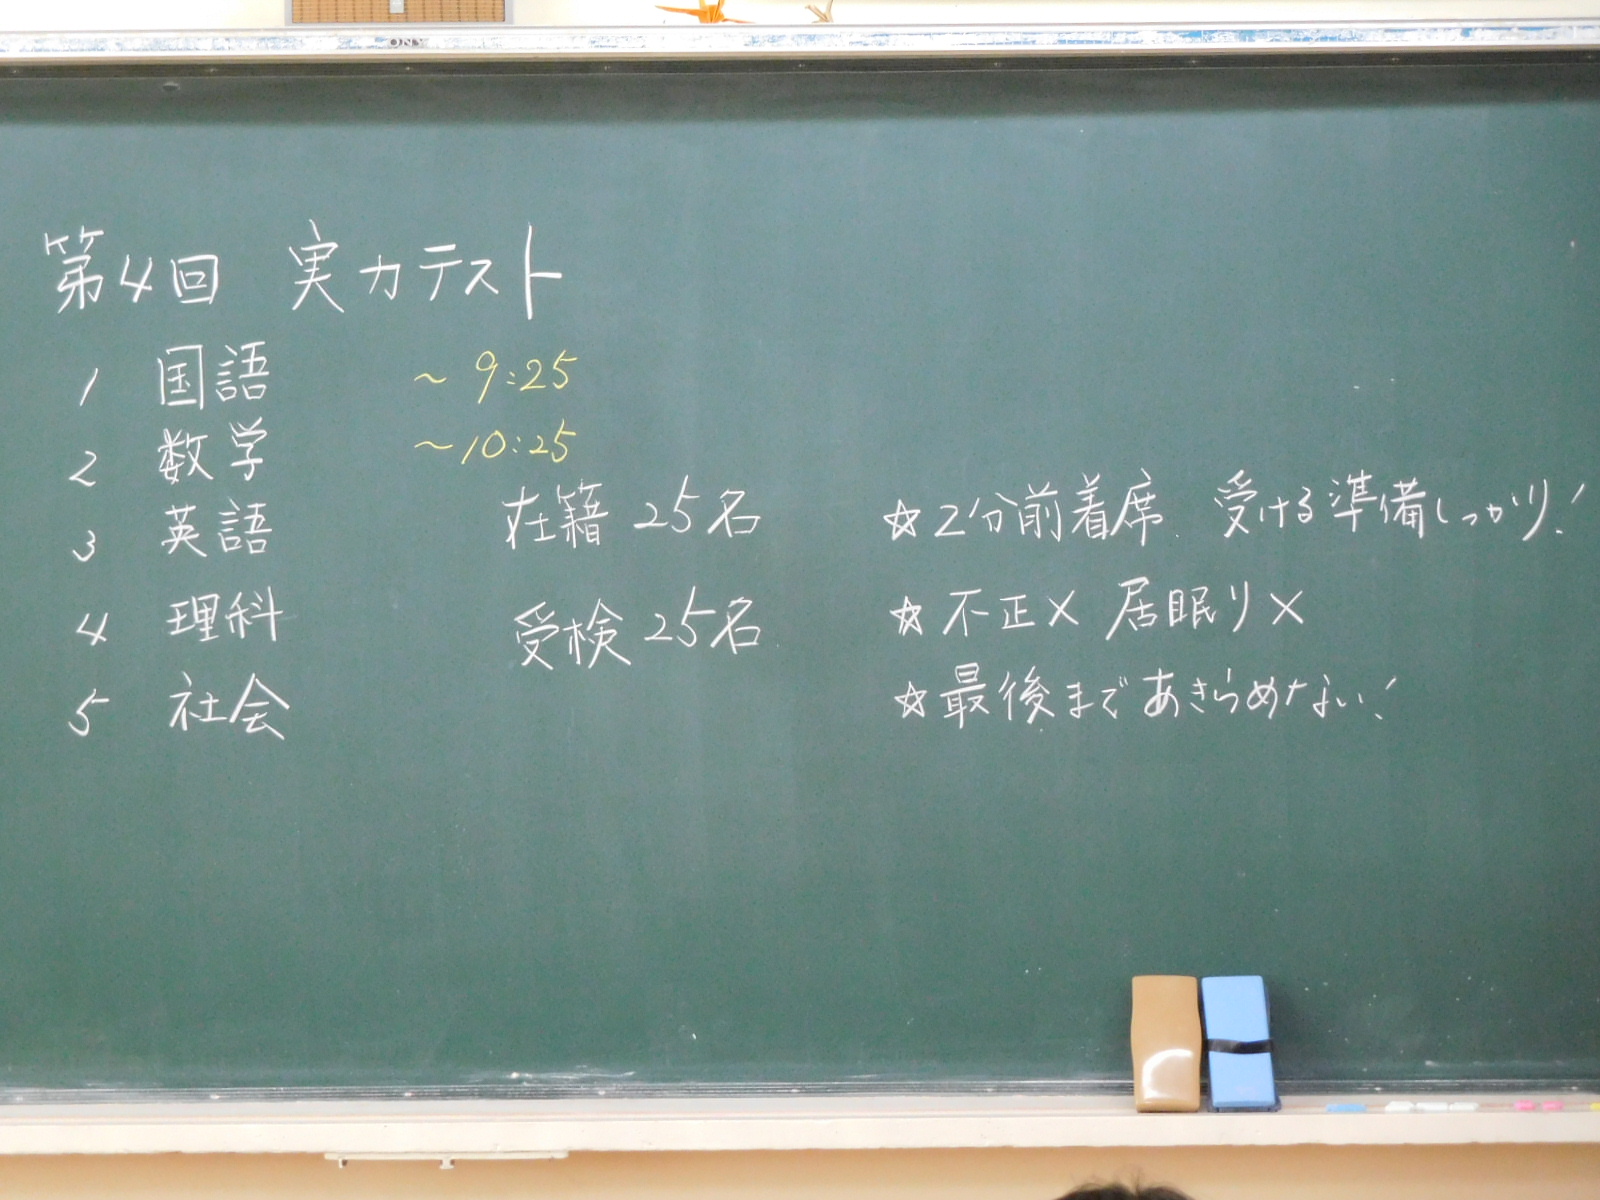 第4回 実力テスト
1 国語 ～9:25
2 数学 ～10:25
3 英語
4 理科
5 社会
在籍 25名
受検 25名
☆2分前着席、受ける準備しっかり！
☆不正× 居眠り×
☆最後まであきらめない！